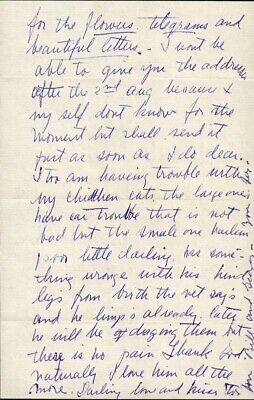 for the flowers. telegrams and
beautiful letters. - I wont be
able to give you the address
after the 2nd aug because I
my self dont know for the
moment but shall send it
just as soon as I do dear.
I too am having trouble with
my children cats, the large one
have ear trouble that is not
bad but the small one
poor little darling has some-
thing wronge with his hind
legs from birth the vet say's
and he limp's already. later
he will be draging them but
there is no pain Thank God
naturally I love him all the
more. Darling love and kisses to
you